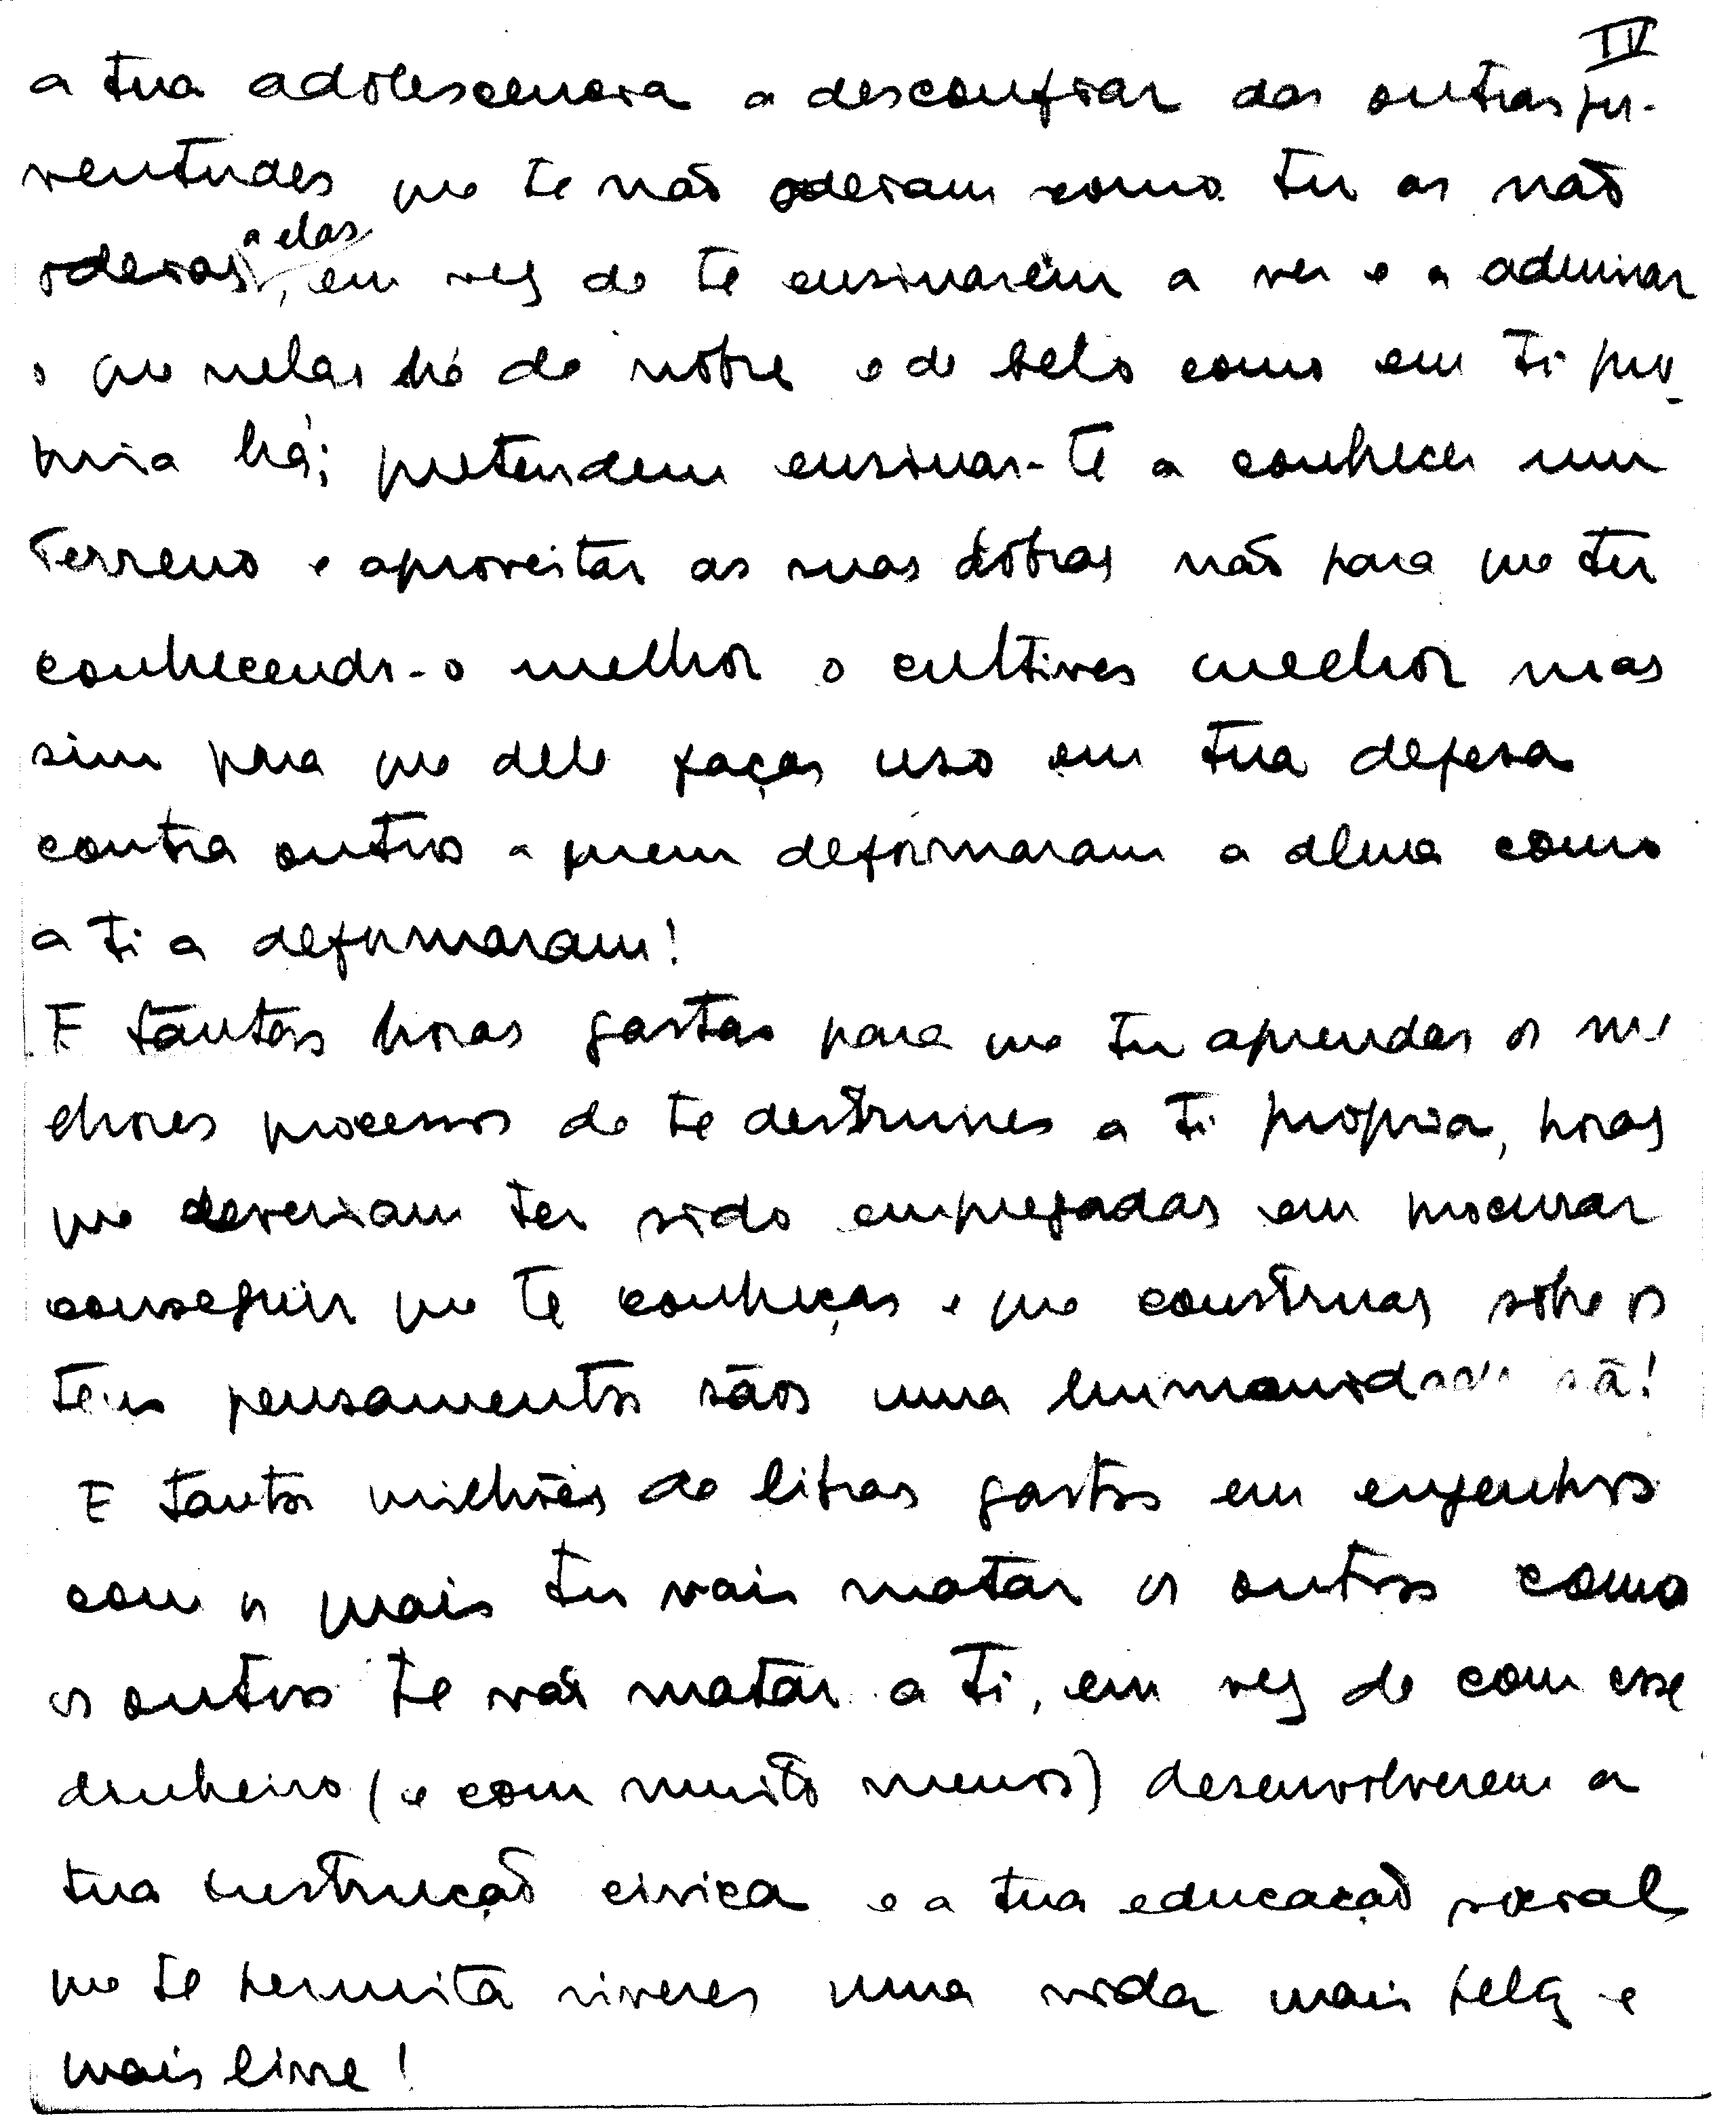 IV
a tua adolescencia a desconfiar das outras ju-
ventudes que te não odeiam como tu as não
odeias a elas, em vez de te ensinarem a ver e a admirar
o que nelas há de nobre e de belo como em ti pró-
pria há; pretendem ensinar-te a conhecer um
terreno e aproveitar as suas dobras não para que tu
conhecendo-o melhor o cultives melhor mas
sim para que dele faças uso em tua defesa
contra outros a quem deformaram a alma como
a ti a deformaram!
E tantas horas gastas para que tu aprendas os me
lhores processos de te destruires a ti própria, horas
que deveriam ter sido empregadas em procurar
conseguir que te conheças e que construas sobre os
teus pensamentos sãos uma humanidade sã!
E tantos milhões de libras gastos em engenhos
com os quais tu vais matar os outros como
os outros te vão matar a ti, em vez de com esse
dinheiro (e com muito menos) desenvolverem a
tua instrução civica e a tua educação social
que te permita viveres uma vida mais bela e
mais livre!